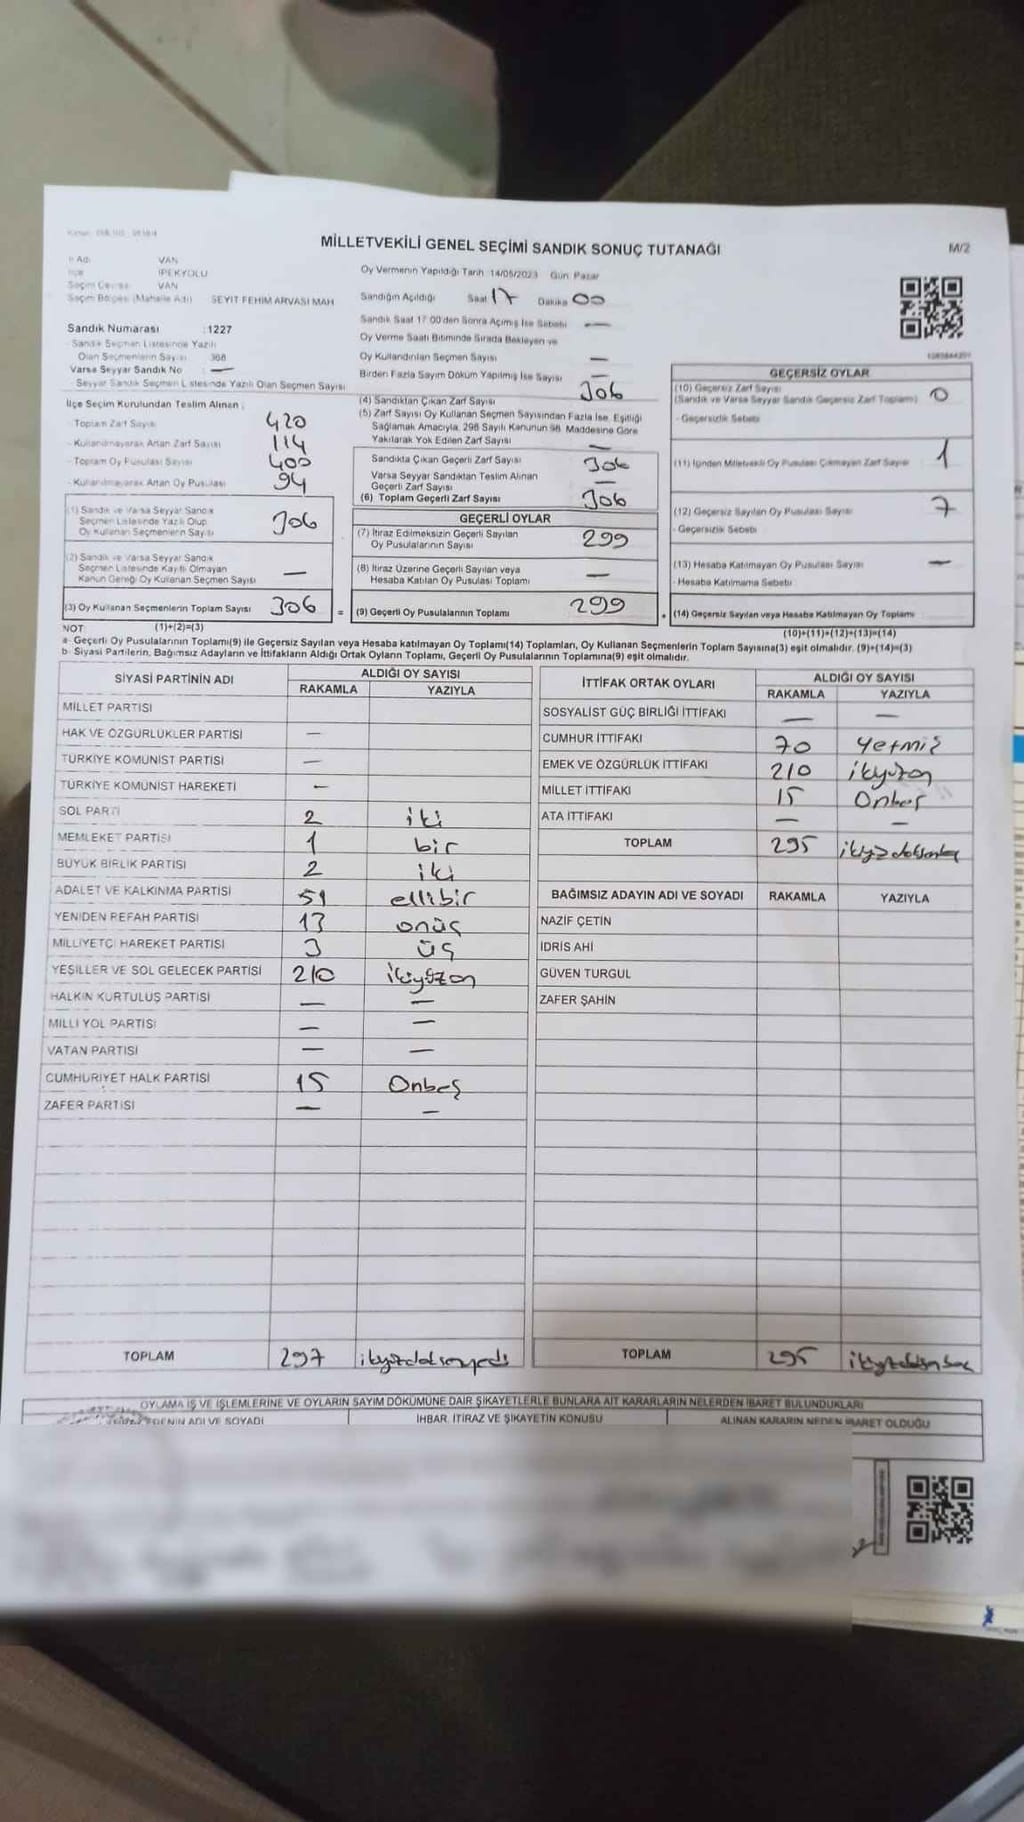 MİLLETVEKİLİ GENEL SEÇİMİ SANDIK SONUÇ TUTANAĞI
M/2
İl Adı VAN
İlçe İPEKYOLU
Seçim Çevresi VAN
Seçim Bölgesi (Mahalle Adı) SEYİT FEHİM ARVASİ MAH
Sandık Numarası :1227
Sandık Seçmen Listesinde Yazılı
Olan Seçmenlerin Sayısı 368
Varsa Seyyar Sandık No —
Seyyar Sandık Seçmen Listesinde Yazılı Olan Seçmen Sayısı
Oy Vermenin Yapıldığı Tarih 14/05/2023 Gün Pazar
Sandığın Açıldığı Saat 17 Dakika 00
Sandık Saat 17:00'den Sonra Açılmış İse Sebebi —
Oy Verme Saati Bitiminde Sırada Bekleyen ve
Oy Kullandırılan Seçmen Sayısı —
Birden Fazla Sayım Döküm Yapılmış İse Sayısı —
İlçe Seçim Kurulundan Teslim Alınan :
- Toplam Zarf Sayısı 420
- Kullanılmayarak Artan Zarf Sayısı 114
- Toplam Oy Pusulası Sayısı 400
- Kullanılmayarak Artan Oy Pusulası 94
(1) Sandık ve Varsa Seyyar Sandık
Seçmen Listesinde Yazılı Olup
Oy Kullanan Seçmenlerin Sayısı 306
(2) Sandık ve Varsa Seyyar Sandık
Seçmen Listesinde Kayıtlı Olmayan
Kanun Gereği Oy Kullanan Seçmen Sayısı —
(3) Oy Kullanan Seçmenlerin Toplam Sayısı 306
(1)+(2)=(3)
(4) Sandıktan Çıkan Zarf Sayısı 306
(5) Zarf Sayısı Oy Kullanan Seçmen Sayısından Fazla İse, Eşitliği
Sağlamak Amacıyla, 298 Sayılı Kanunun 98. Maddesine Göre
Yakılarak Yok Edilen Zarf Sayısı —
Sandıkta Çıkan Geçerli Zarf Sayısı 306
Varsa Seyyar Sandıktan Teslim Alınan
Geçerli Zarf Sayısı —
(6) Toplam Geçerli Zarf Sayısı 306
GEÇERLİ OYLAR
(7) İtiraz Edilmeksizin Geçerli Sayılan
Oy Pusulalarının Sayısı 299
(8) İtiraz Üzerine Geçerli Sayılan veya
Hesaba Katılan Oy Pusulası Toplamı —
= (9) Geçerli Oy Pusulalarının Toplamı 299
GEÇERSİZ OYLAR
(10) Geçersiz Zarf Sayısı
(Sandık ve Varsa Seyyar Sandık Geçersiz Zarf Toplamı) 0
- Geçersizlik Sebebi
(11) İçinden Milletvekili Oy Pusulası Çıkmayan Zarf Sayısı 1
(12) Geçersiz Sayılan Oy Pusulası Sayısı 7
- Geçersizlik Sebebi
(13) Hesaba Katılmayan Oy Pusulası Sayısı —
- Hesaba Katılmama Sebebi
+ (14) Geçersiz Sayılan veya Hesaba Katılmayan Oy Toplamı
(10)+(11)+(12)+(13)=(14)
NOT:
a- Geçerli Oy Pusulalarının Toplamı(9) ile Geçersiz Sayılan veya Hesaba katılmayan Oy Toplamı(14) Toplamları, Oy Kullanan Seçmenlerin Toplam Sayısına(3) eşit olmalıdır. (9)+(14)=(3)
b- Siyasi Partilerin, Bağımsız Adayların ve İttifakların Aldığı Ortak Oyların Toplamı, Geçerli Oy Pusulalarının Toplamına(9) eşit olmalıdır.
SİYASİ PARTİNİN ADI ALDIĞI OY SAYISI
RAKAMLA YAZIYLA
MİLLET PARTİSİ
HAK VE ÖZGÜRLÜKLER PARTİSİ —
TÜRKİYE KOMÜNİST PARTİSİ —
TÜRKİYE KOMÜNİST HAREKETİ —
SOL PARTİ 2 iki
MEMLEKET PARTİSİ 1 bir
BÜYÜK BİRLİK PARTİSİ 2 iki
ADALET VE KALKINMA PARTİSİ 51 ellibir
YENİDEN REFAH PARTİSİ 13 onüç
MİLLİYETÇİ HAREKET PARTİSİ 3 üç
YEŞİLLER VE SOL GELECEK PARTİSİ 210 ikiyüzon
HALKIN KURTULUŞ PARTİSİ — —
MİLLİ YOL PARTİSİ — —
VATAN PARTİSİ — —
CUMHURİYET HALK PARTİSİ 15 Onbeş
ZAFER PARTİSİ — —
TOPLAM 297
İTTİFAK ORTAK OYLARI ALDIĞI OY SAYISI
RAKAMLA YAZIYLA
SOSYALİST GÜÇ BİRLİĞİ İTTİFAKI — —
CUMHUR İTTİFAKI 70 Yetmiş
EMEK VE ÖZGÜRLÜK İTTİFAKI 210 ikiyüzon
MİLLET İTTİFAKI 15 Onbeş
ATA İTTİFAKI — —
TOPLAM 295
BAĞIMSIZ ADAYIN ADI VE SOYADI RAKAMLA YAZIYLA
NAZİF ÇETİN
İDRİS AHİ
GÜVEN TURGUL
ZAFER ŞAHİN
TOPLAM 295
OYLAMA İŞ VE İŞLEMLERİNE VE OYLARIN SAYIM DÖKÜMÜNE DAİR ŞİKAYETLERLE BUNLARA AİT KARARLARIN NELERDEN İBARET BULUNDUKLARI
ADI VE SOYADI İHBAR, İTİRAZ VE ŞİKAYETİN KONUSU ALINAN KARARIN NEDEN İBARET OLDUĞU